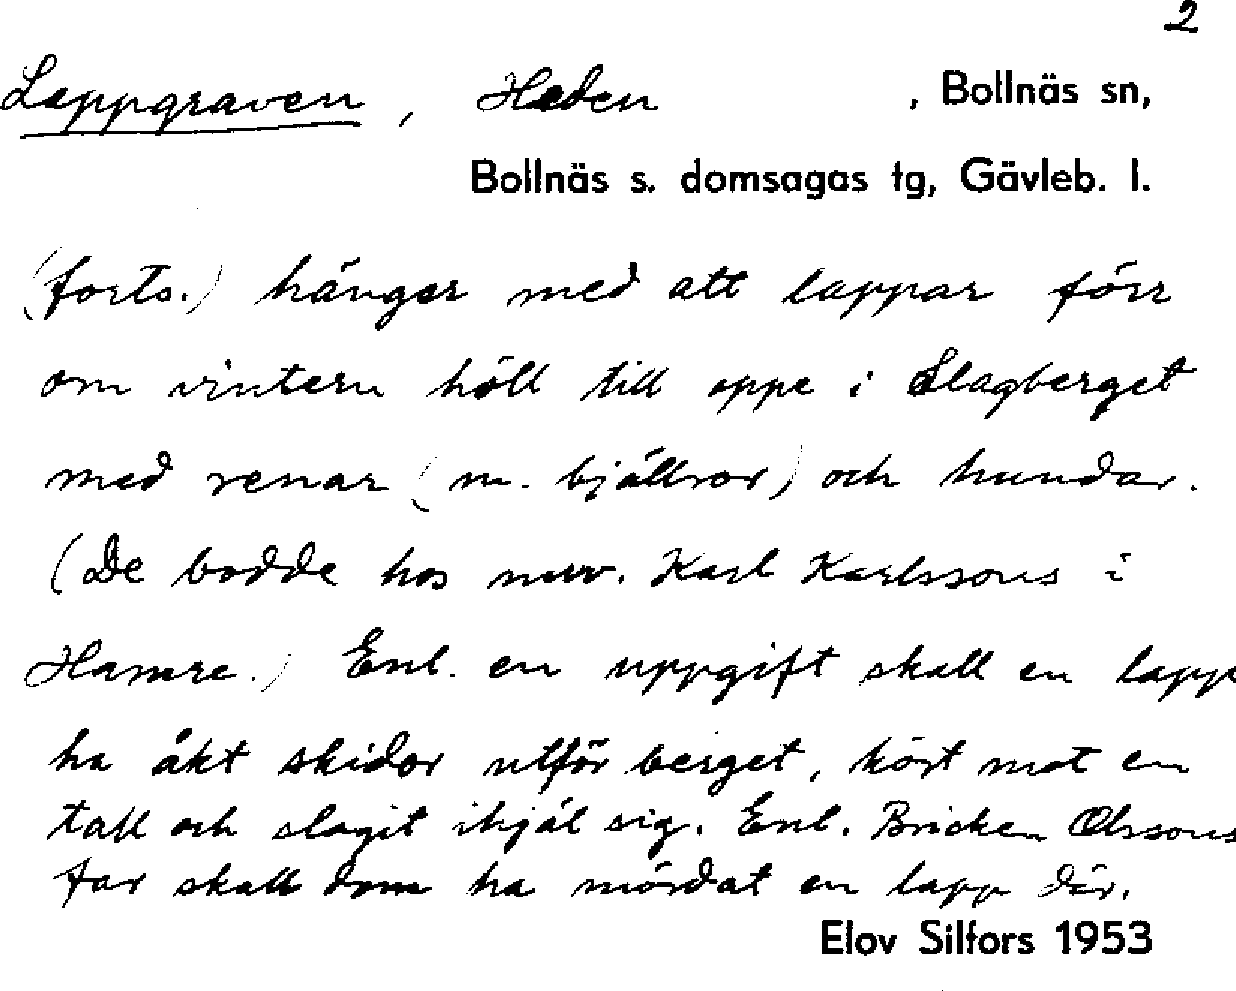 2
Lappgraven, Heden, Bollnäs sn,
Bollnäs s. domsagas tg, Gävleb. l.
(forts.) hänger med att lappar förr
om vintern höll till oppe i Slagberget
med renar (m. bjällror) och hundar.
(De bodde hos nuv. Karl Karlssons i
Hamre.) Enl. en uppgift skall en lapp
ha åkt skidor utför berget, kört mot en
tall och slagit ihjäl sig. Enl. Bricken Olssons
far skall dom ha mördat en lapp där.
Elov Silfors 1953